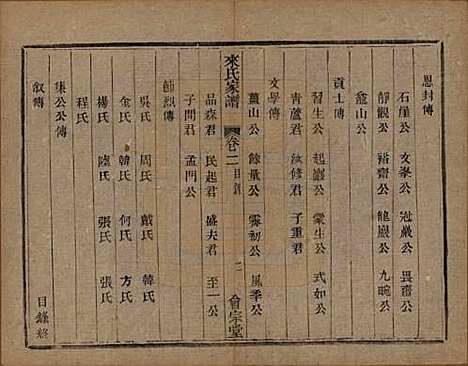 恩封傳
石崖公 文峯公 冠巖公 畏齋公
靜觀公 裕齋公 龍巖公 九畹公
龕山公
貢士傳
習生公 起巖公 棠生公 式如公
青蘆君 汝修君 子重君
文學傳
薑山公 餘量公 霽初公 風季公
來氏家譜 卷二 目錄 二 會宗堂
品森君 民起君 盛夫君 至一公
子開君 孟門公
節烈傳
吳氏 周氏 戴氏 韓氏
金氏 韓氏 何氏 方氏
楊氏 陸氏 張氏 張氏
程氏
集公公傳
敘傳
目錄終